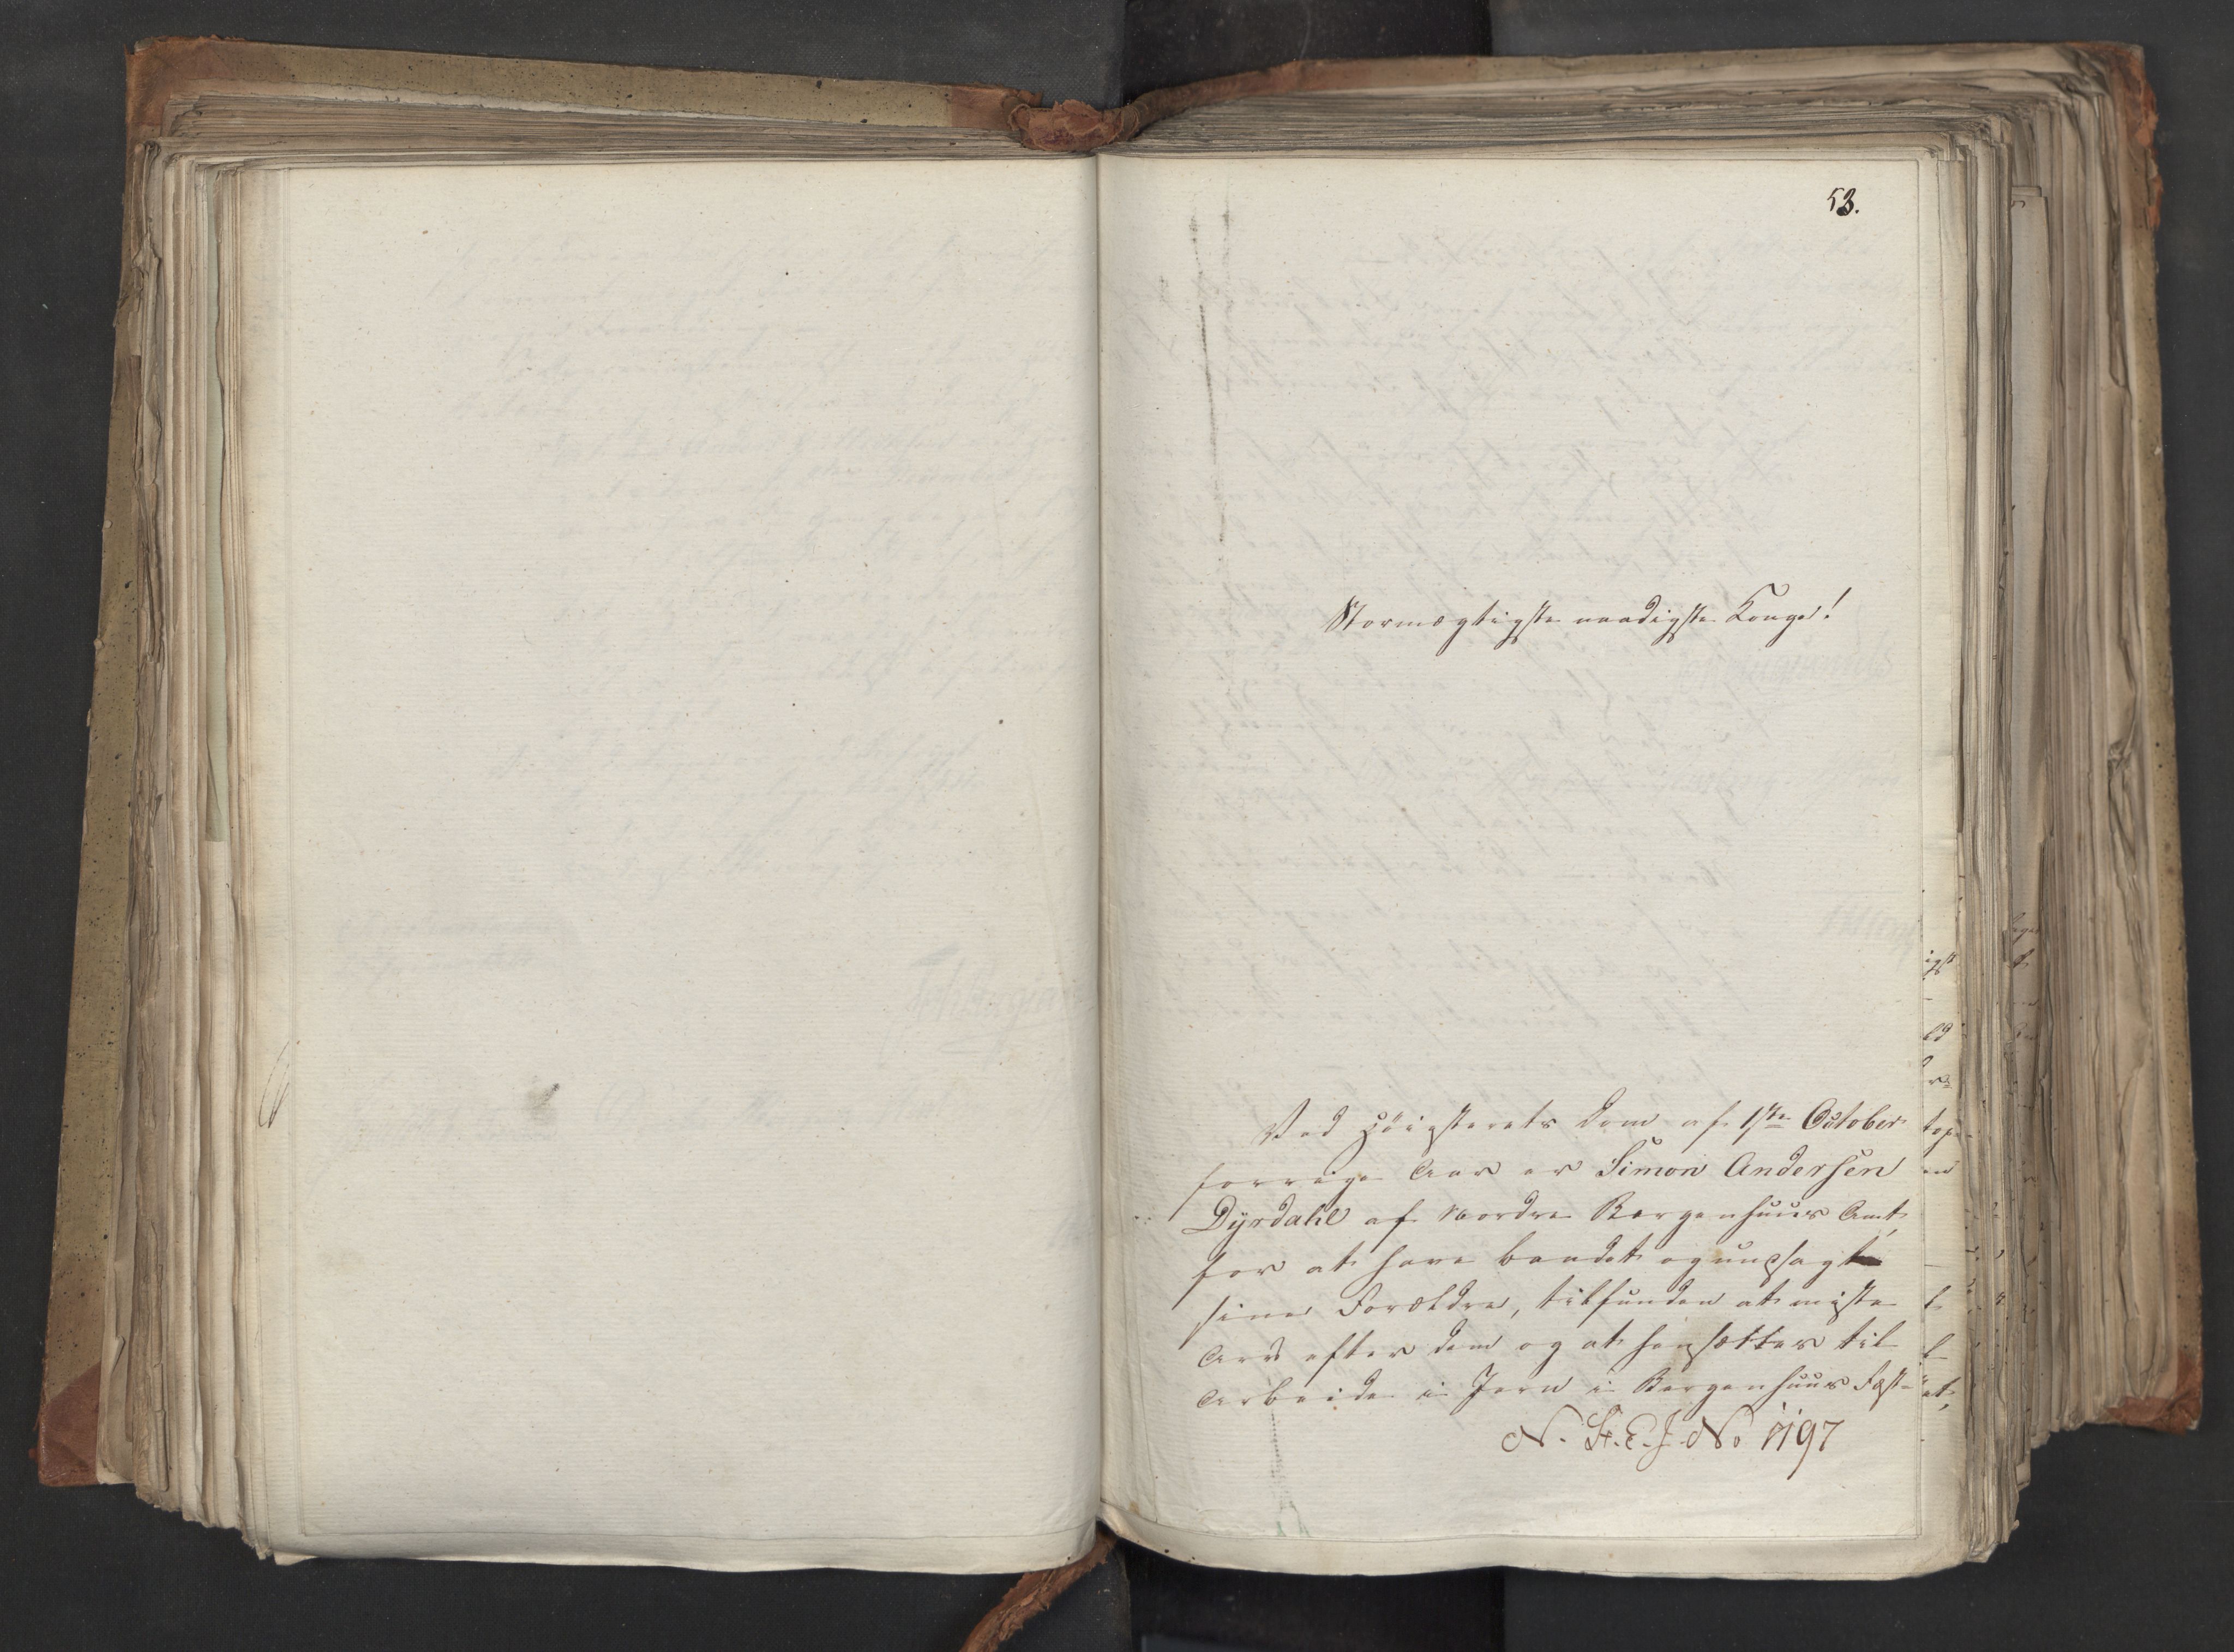 53.
Stormægtigste naadigste Konge!
Ved Høiesterets Dom af 1ste October
forrige Aar er Simon Andersen
Dyrdahl af Nordre Bergenhuus Amt,
for at have bandet og undsagt
sine Forældre, tilfunden at miste
Arv efter dem og at hensættes til
Arbeide i Jern i Bergenhuus Fæst-
N. St. E. J. No 1197